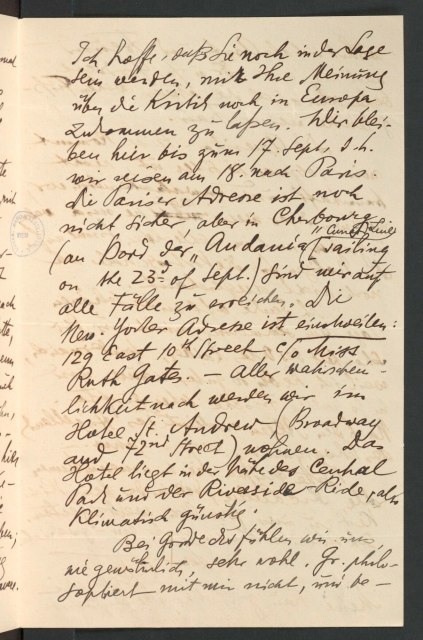 Ich hoffe, daß Sie noch in der Lage
sein werden, mir Ihre Meinung
über die Kritik noch in Europa
zukommen zu laßen. Wir blei-
ben hier bis zum 17. Sept. d. h.
wir reisen am 18. nach Paris.
Die Pariser Adresse ist noch
nicht sicher, aber in Cherbourg
"Cunard Line"
(an Bord der "Andania" (sailing
on the 23d of Sept.) sind wir auf
alle Fälle zu erreichen. Die
New-Yorker Adresse ist einstweilen:
129 East 10th Street, c/o Miss
Ruth Gates. — Aller wahrschein-
lichkeit nach werden wir im
Hotel St. Andrew (Broadway
and 72nd Street) wohnen. Das
Hotel liegt in der Nähe des Central
Park und der Riverside-Ride, also
klimatisch günstig.
Bei fühlen wir uns
wie gewöhnlich, sehr wohl. Gr. philo-
sophiert mit mir nicht, und be-